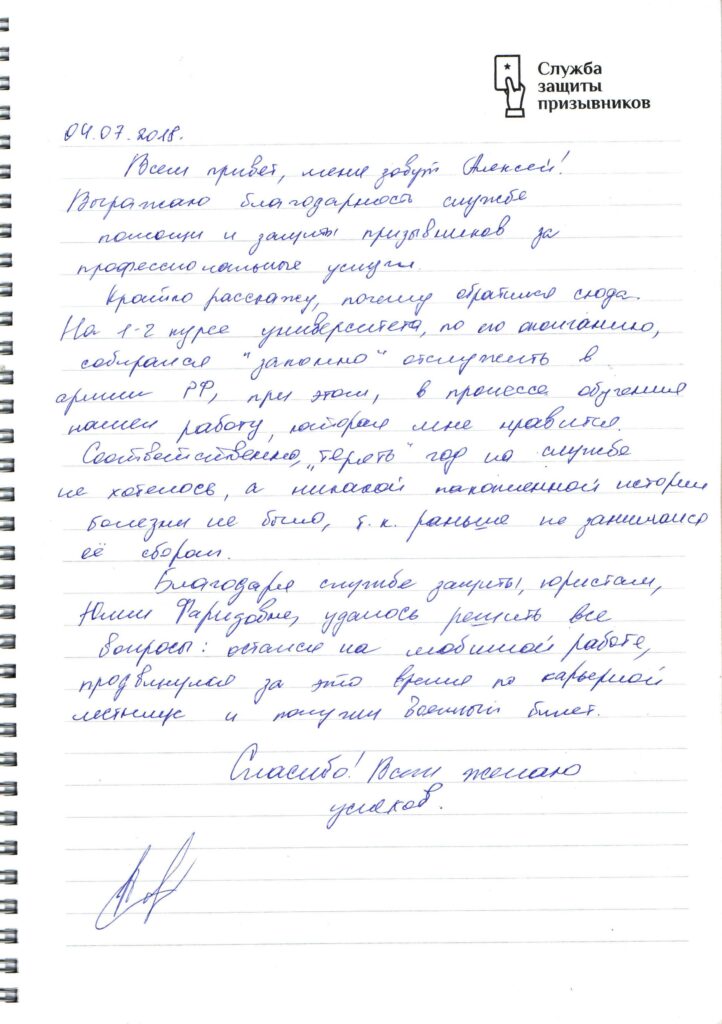 Служба
защиты
призывников
04.07.2018.
Всем привет, меня зовут Алексей!
Выражаю благодарность службе
помощи и защиты призывников за
профессиональные услуги.
Кратко расскажу, почему обратился сюда.
На 1-2 курсе университета, по его окончанию,
собирался "законно" отслужить в
армии РФ, при этом, в процессе обучения
нашел работу, которая мне нравится.
Соответственно, "терять" год на службе
не хотелось, а никакой накопленной истории
болезни не было, т.к. раньше не занимался
её сбором.
Благодаря службе защиты, юристам,
Юлии Фаридовне, удалось решить все
вопросы: остался на любимой работе,
продвинулся за это время по карьерной
лестнице и получил военный билет.
Спасибо! Всем желаю
успехов.